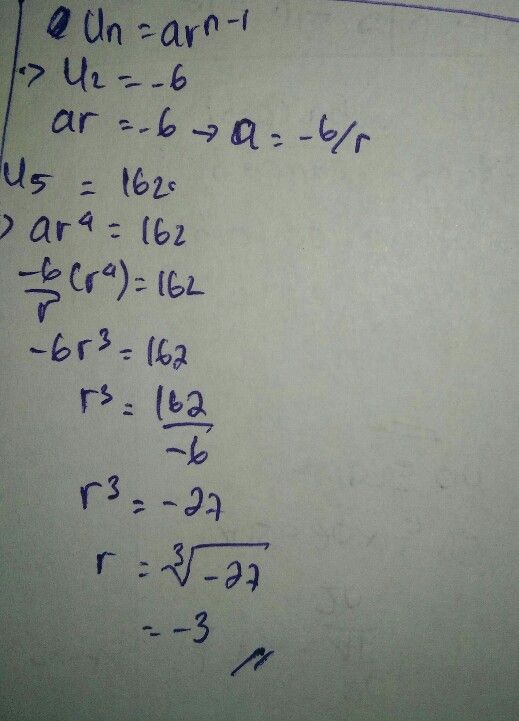 Un = arⁿ⁻¹
U₂ = -6
ar = -6 → a = -6/r
U₅ = 162
ar⁴ = 162
-6/r (r⁴) = 162
-6r³ = 162
r³ = 162/-6
r³ = -27
r = ³√-27
= -3